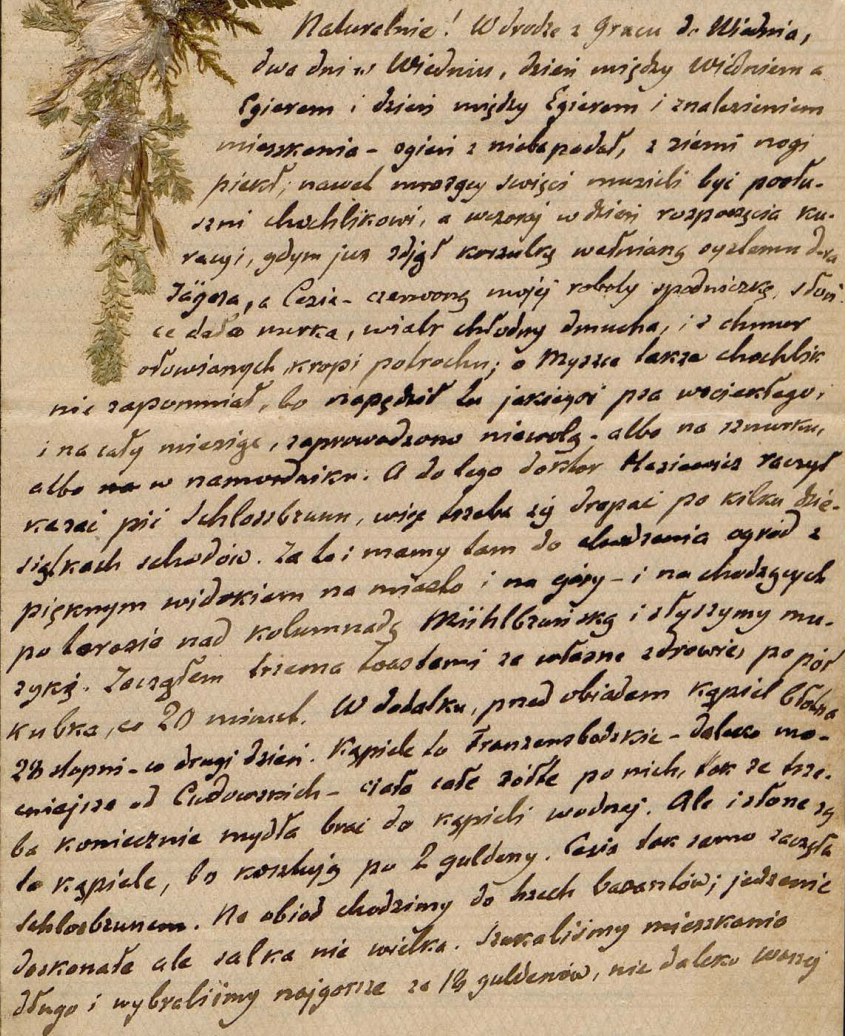 Naturalnie! W drodze z Gracu do Wiednia,
dwa dni w Wiedniu, dzień między Wiedniem a
Egierem i dzień między Egierem i znalezieniem
mieszkania - ogień z nieba padał, z ziemi nogi
piekł; nawet mrozący święci musieli być posłu-
szni chochlikowi, a wczoraj w dzień rozpoczęcia ku-
racyi, gdym już zdjął koszulkę wełnianą systemu dra
Jägera, a Cezia - czerwoną mojej roboty spódniczkę, słoń-
ce dało nurka, wiatr chłodny dmucha, i z chmur
ołowianych kropi potrochu; o Myszce także chochlik
nie zapomniał, bo napędził tu jakiegoś psa wściekłego,
i na cały miesiąc, zaprowadzono niewolę - albo na sznurku,
albo w namordniku. A do tego doktor raczył
kazać pić Schlossbrunn, więc trzeba się drapać po kilku dzie-
siątkach schodów. Za to i mamy tam do chodzenia ogród z
pięknym widokiem na miasto i na góry - i na chodzących
po tarasie nad kolumnadą Mühlbruńską i słyszymy mu-
zykę. Zacząłem trzema toastami za własne zdrowie, po pół
kubka, co 20 minut. W dodatku, przed obiadem kąpiel błotna
28 stopni - co drugi dzień. Kąpiele to Franzensbadzkie - daleko mo-
cniejsze od Cudowskich - ciało całe żółte po nich, tak że trze-
ba koniecznie mydła brać do kąpieli wodnej. Ale i słone są
te kąpiele, bo kosztują po 2 guldeny. Cezia tak samo zaczęła
Schlosbrunem. Na obiad chodzimy do trzech bażantów; jedzenie
doskonałe ale salka nie wielka. Szukaliśmy mieszkania
długo i wybraliśmy najgorsze za 18 guldenów, nie daleko waszej